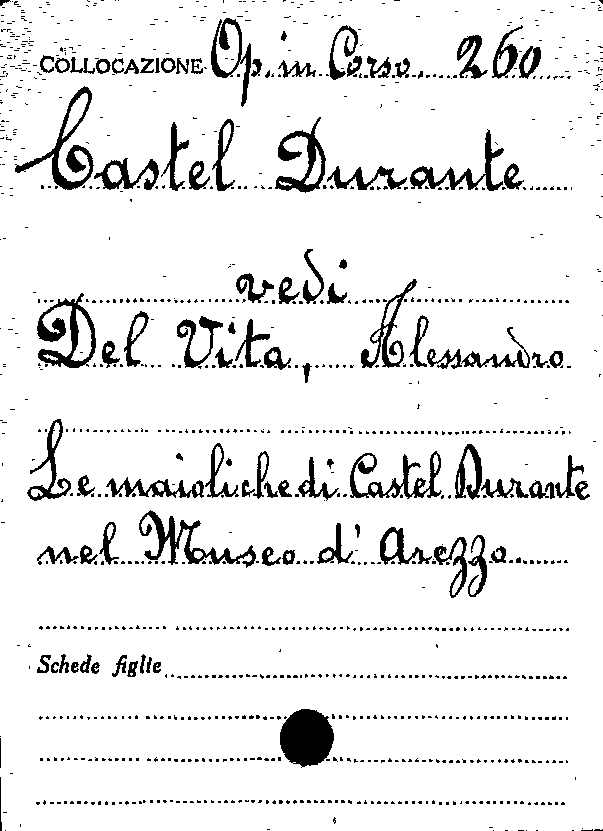 COLLOCAZIONE Op. in Corso. 260
Castel Durante
vedi
Del Vita, Alessandro
Le maioliche di Castel Durante
nel Museo d' Arezzo.
Schede figlie